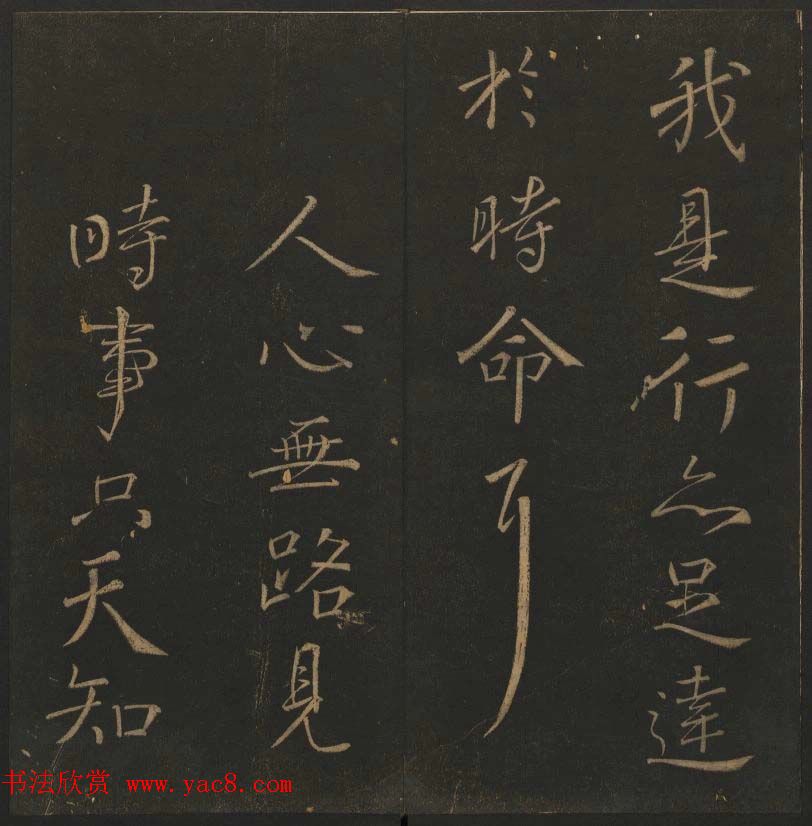 我是行亦足達
於時命耳
人心無路見
時事只天知
书法欣赏 www.yac8.com